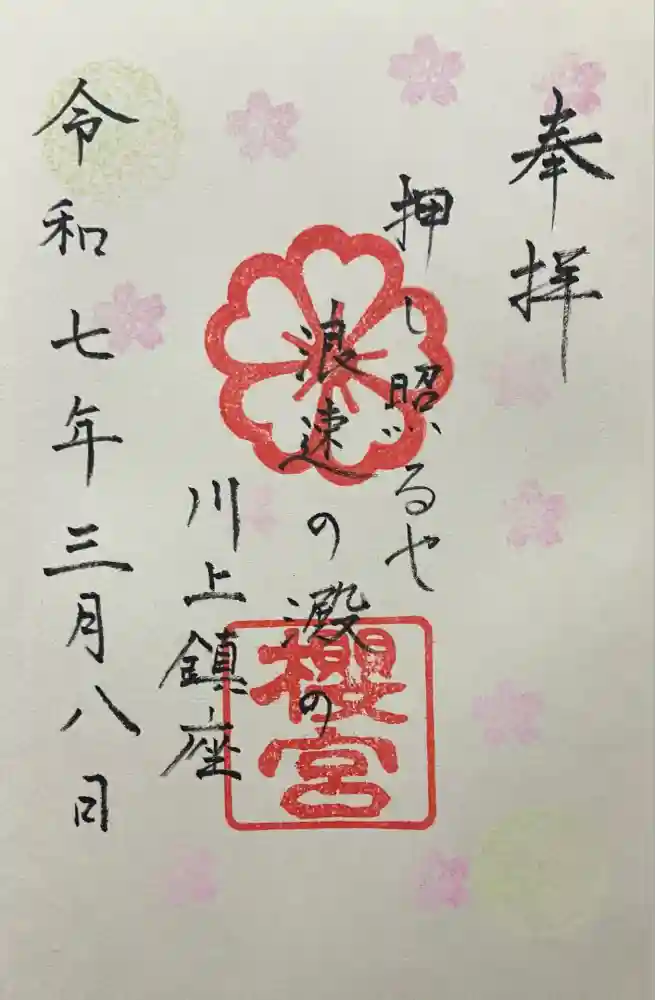 奉拝
押し照るや
浪速の澱の
川上鎮座
櫻宮
令和七年三月八日